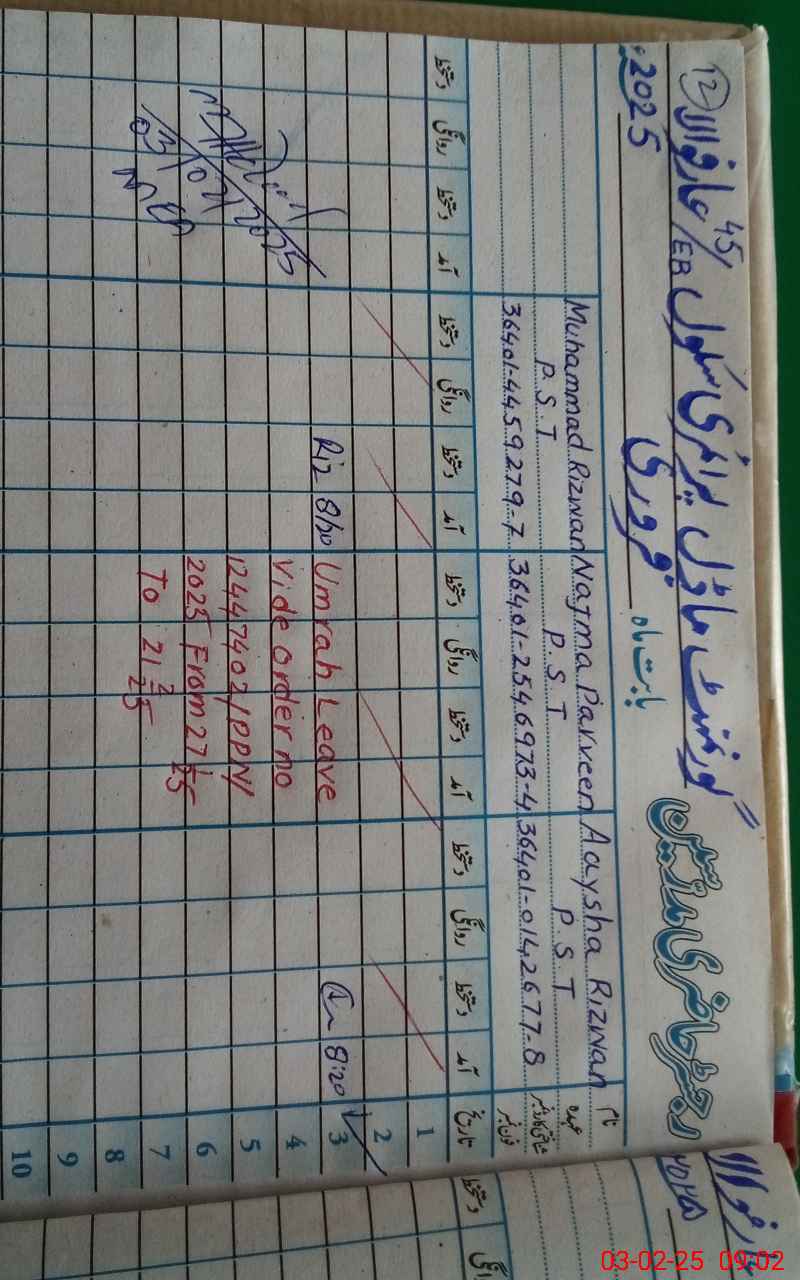 رجسٹر حاضری مدرسین گورنمنٹ ماڈل پرائمری سکول 45/EB عارفوالا (12)
بابت ماہ فروری 2025ء
نام Aaysha Rizwan Najma Parveen Muhammad Rizwan
عہدہ P.S.T P.S.T P.S.T
شناختی کارڈ نمبر 36401-0142677-8 36401-2546973-4 36401-4459279-7
تاریخ آمد دستخط روانگی دستخط آمد دستخط روانگی دستخط آمد دستخط روانگی دستخط آمد دستخط روانگی دستخط
1
2
3 8:20 Umrah Leave 8/20 Riz
4 Vide order no
5 12447402/PPN/
6 2025 From 27 1/25
7 To 21 2/25
8
9
10
دستخط
روانگی
۲۰۲۵
03-02-25 09:02